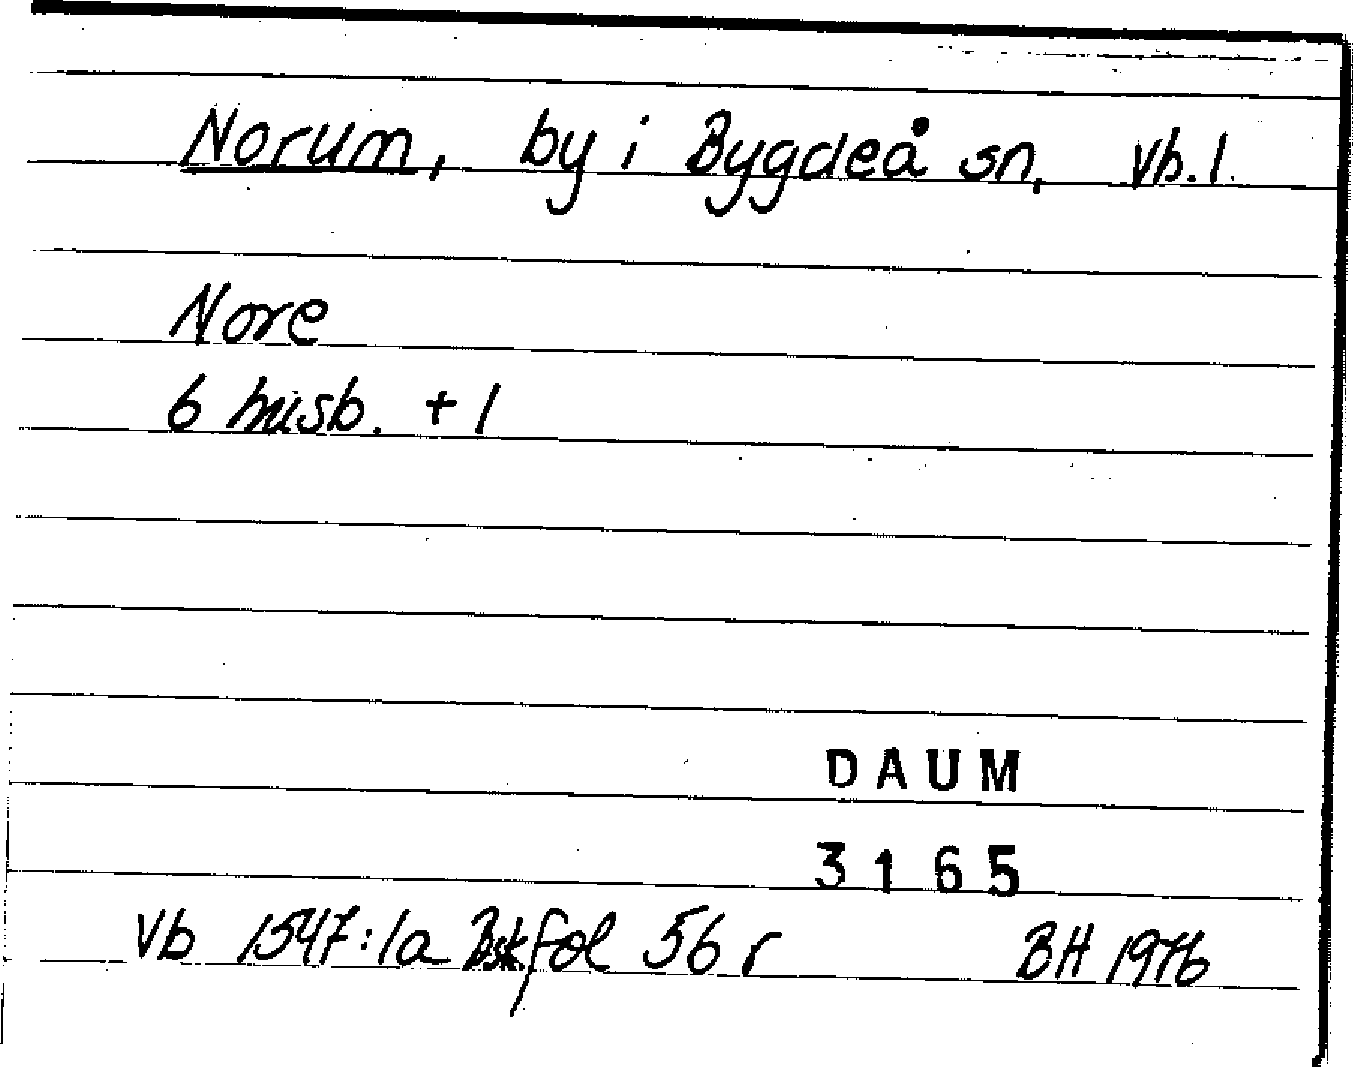 Norum, by i Bygdeå sn, Vb. l.
Nore
6 husb. + 1
DAUM
3165
Vb 1547:1a Bsk fol 56 r BH 1976